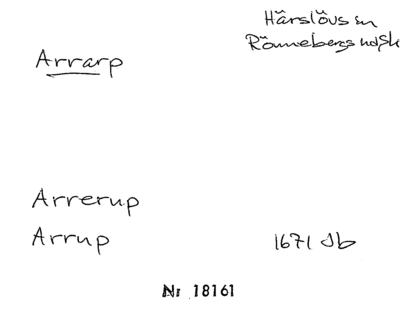 Härslövs sn
Rönnebergs hd Sk
Arrarp
Arrerup
Arrup 1671 Jb
Nr 18161